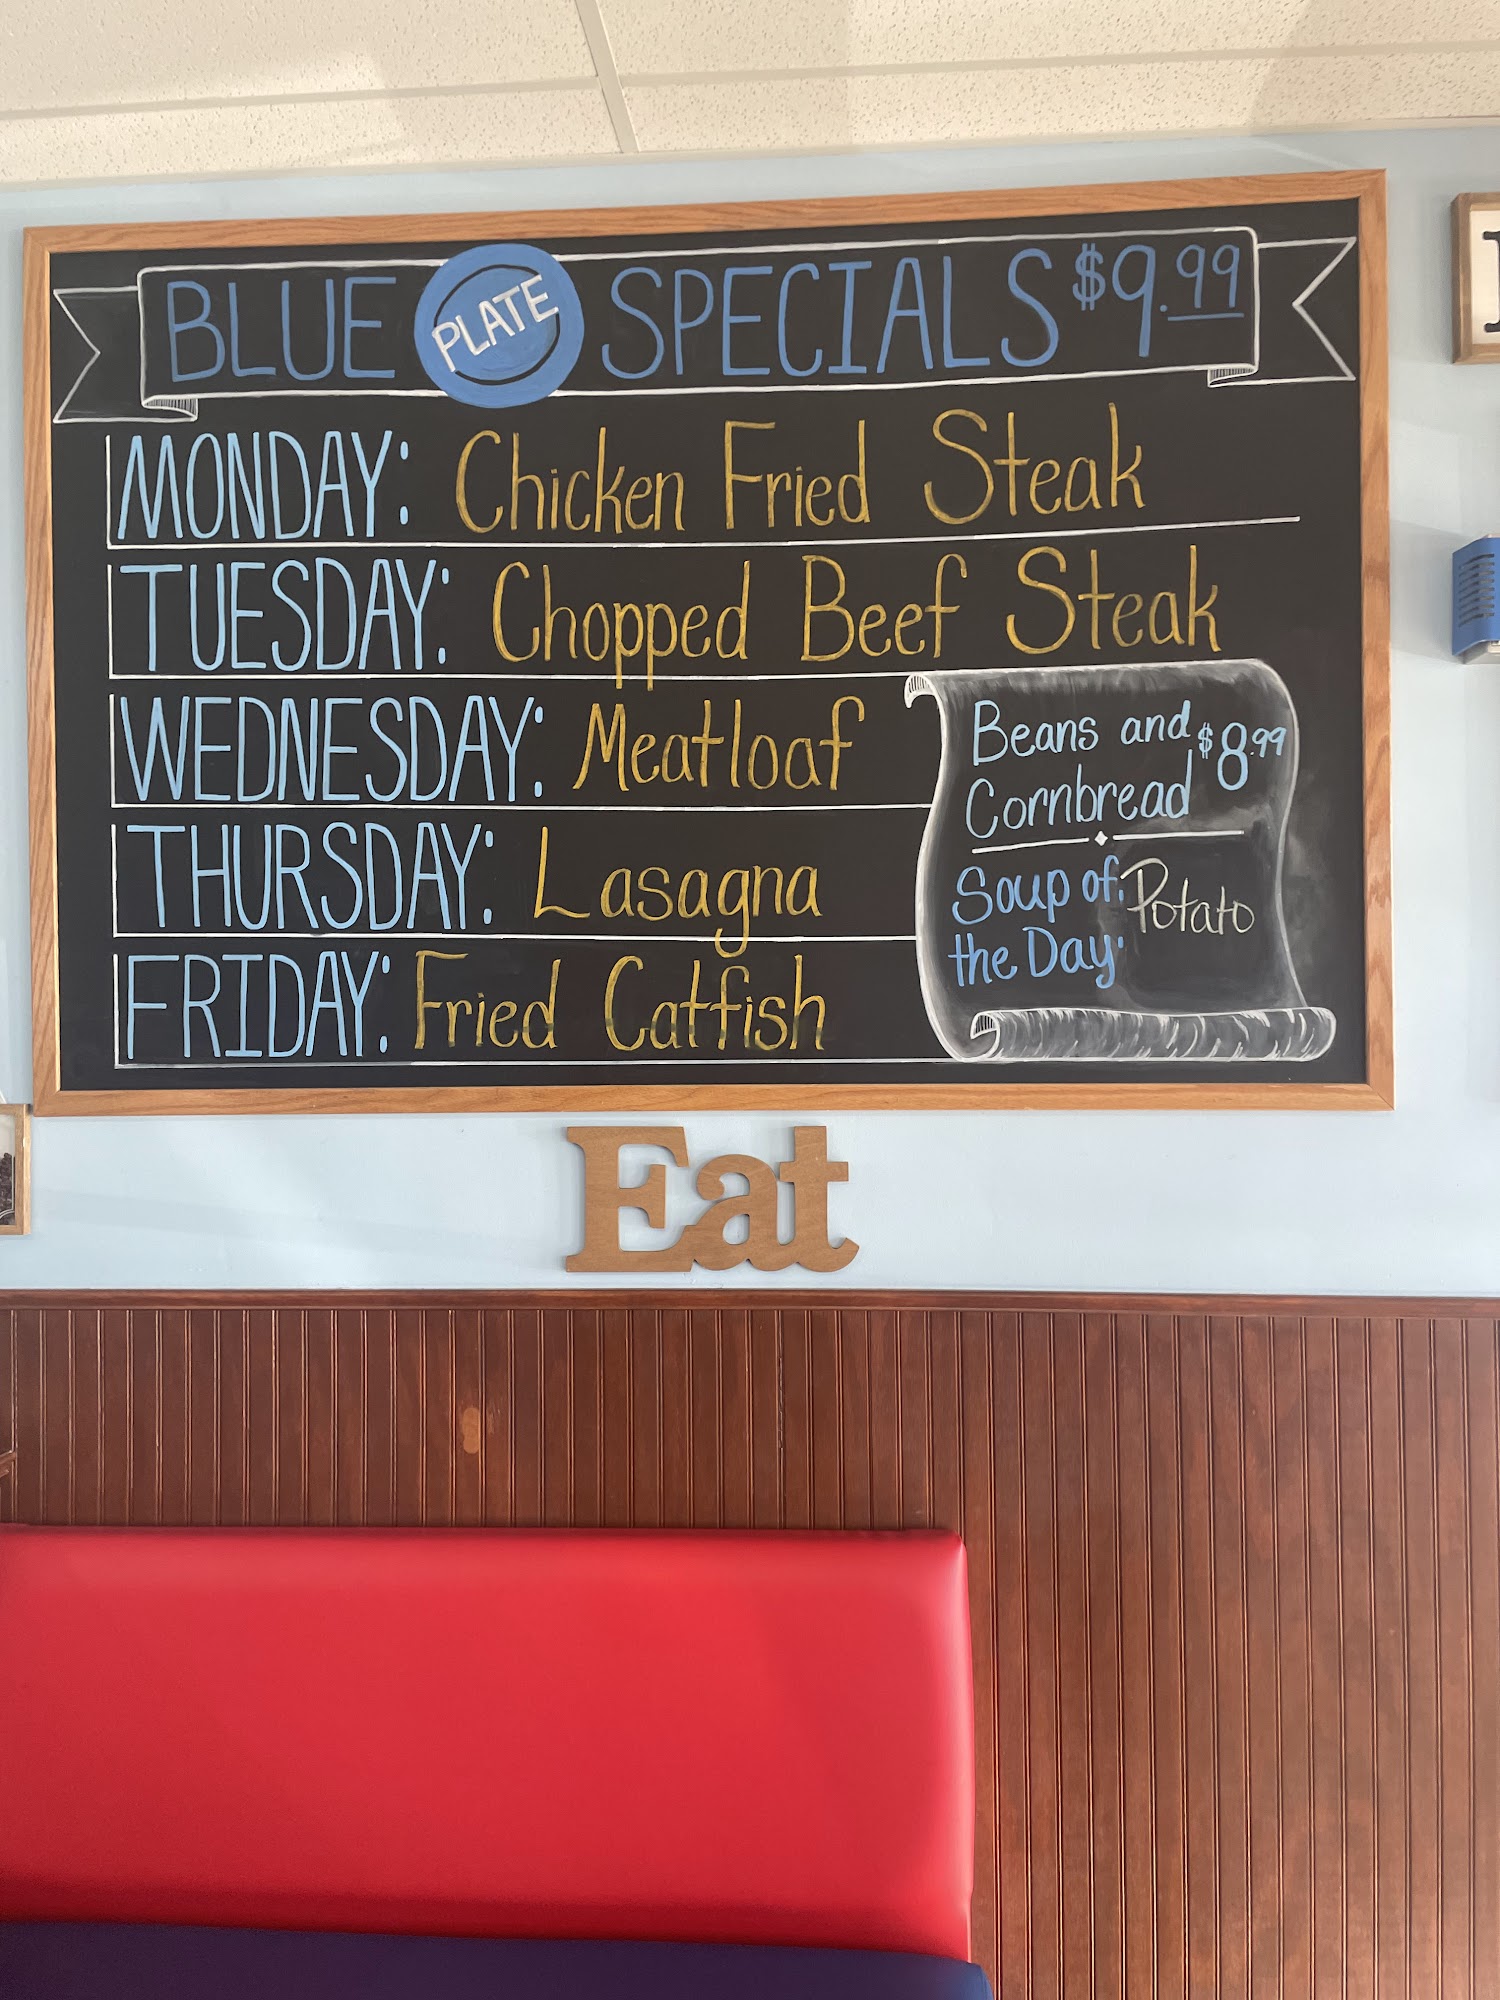 BLUE PLATE SPECIALS $9.99
MONDAY: Chicken Fried Steak
TUESDAY: Chopped Beef Steak
WEDNESDAY: Meatloaf
THURSDAY: Lasagna
FRIDAY: Fried Catfish
Beans and
Cornbread $8.99
Soup of
the Day: Potato
Eat